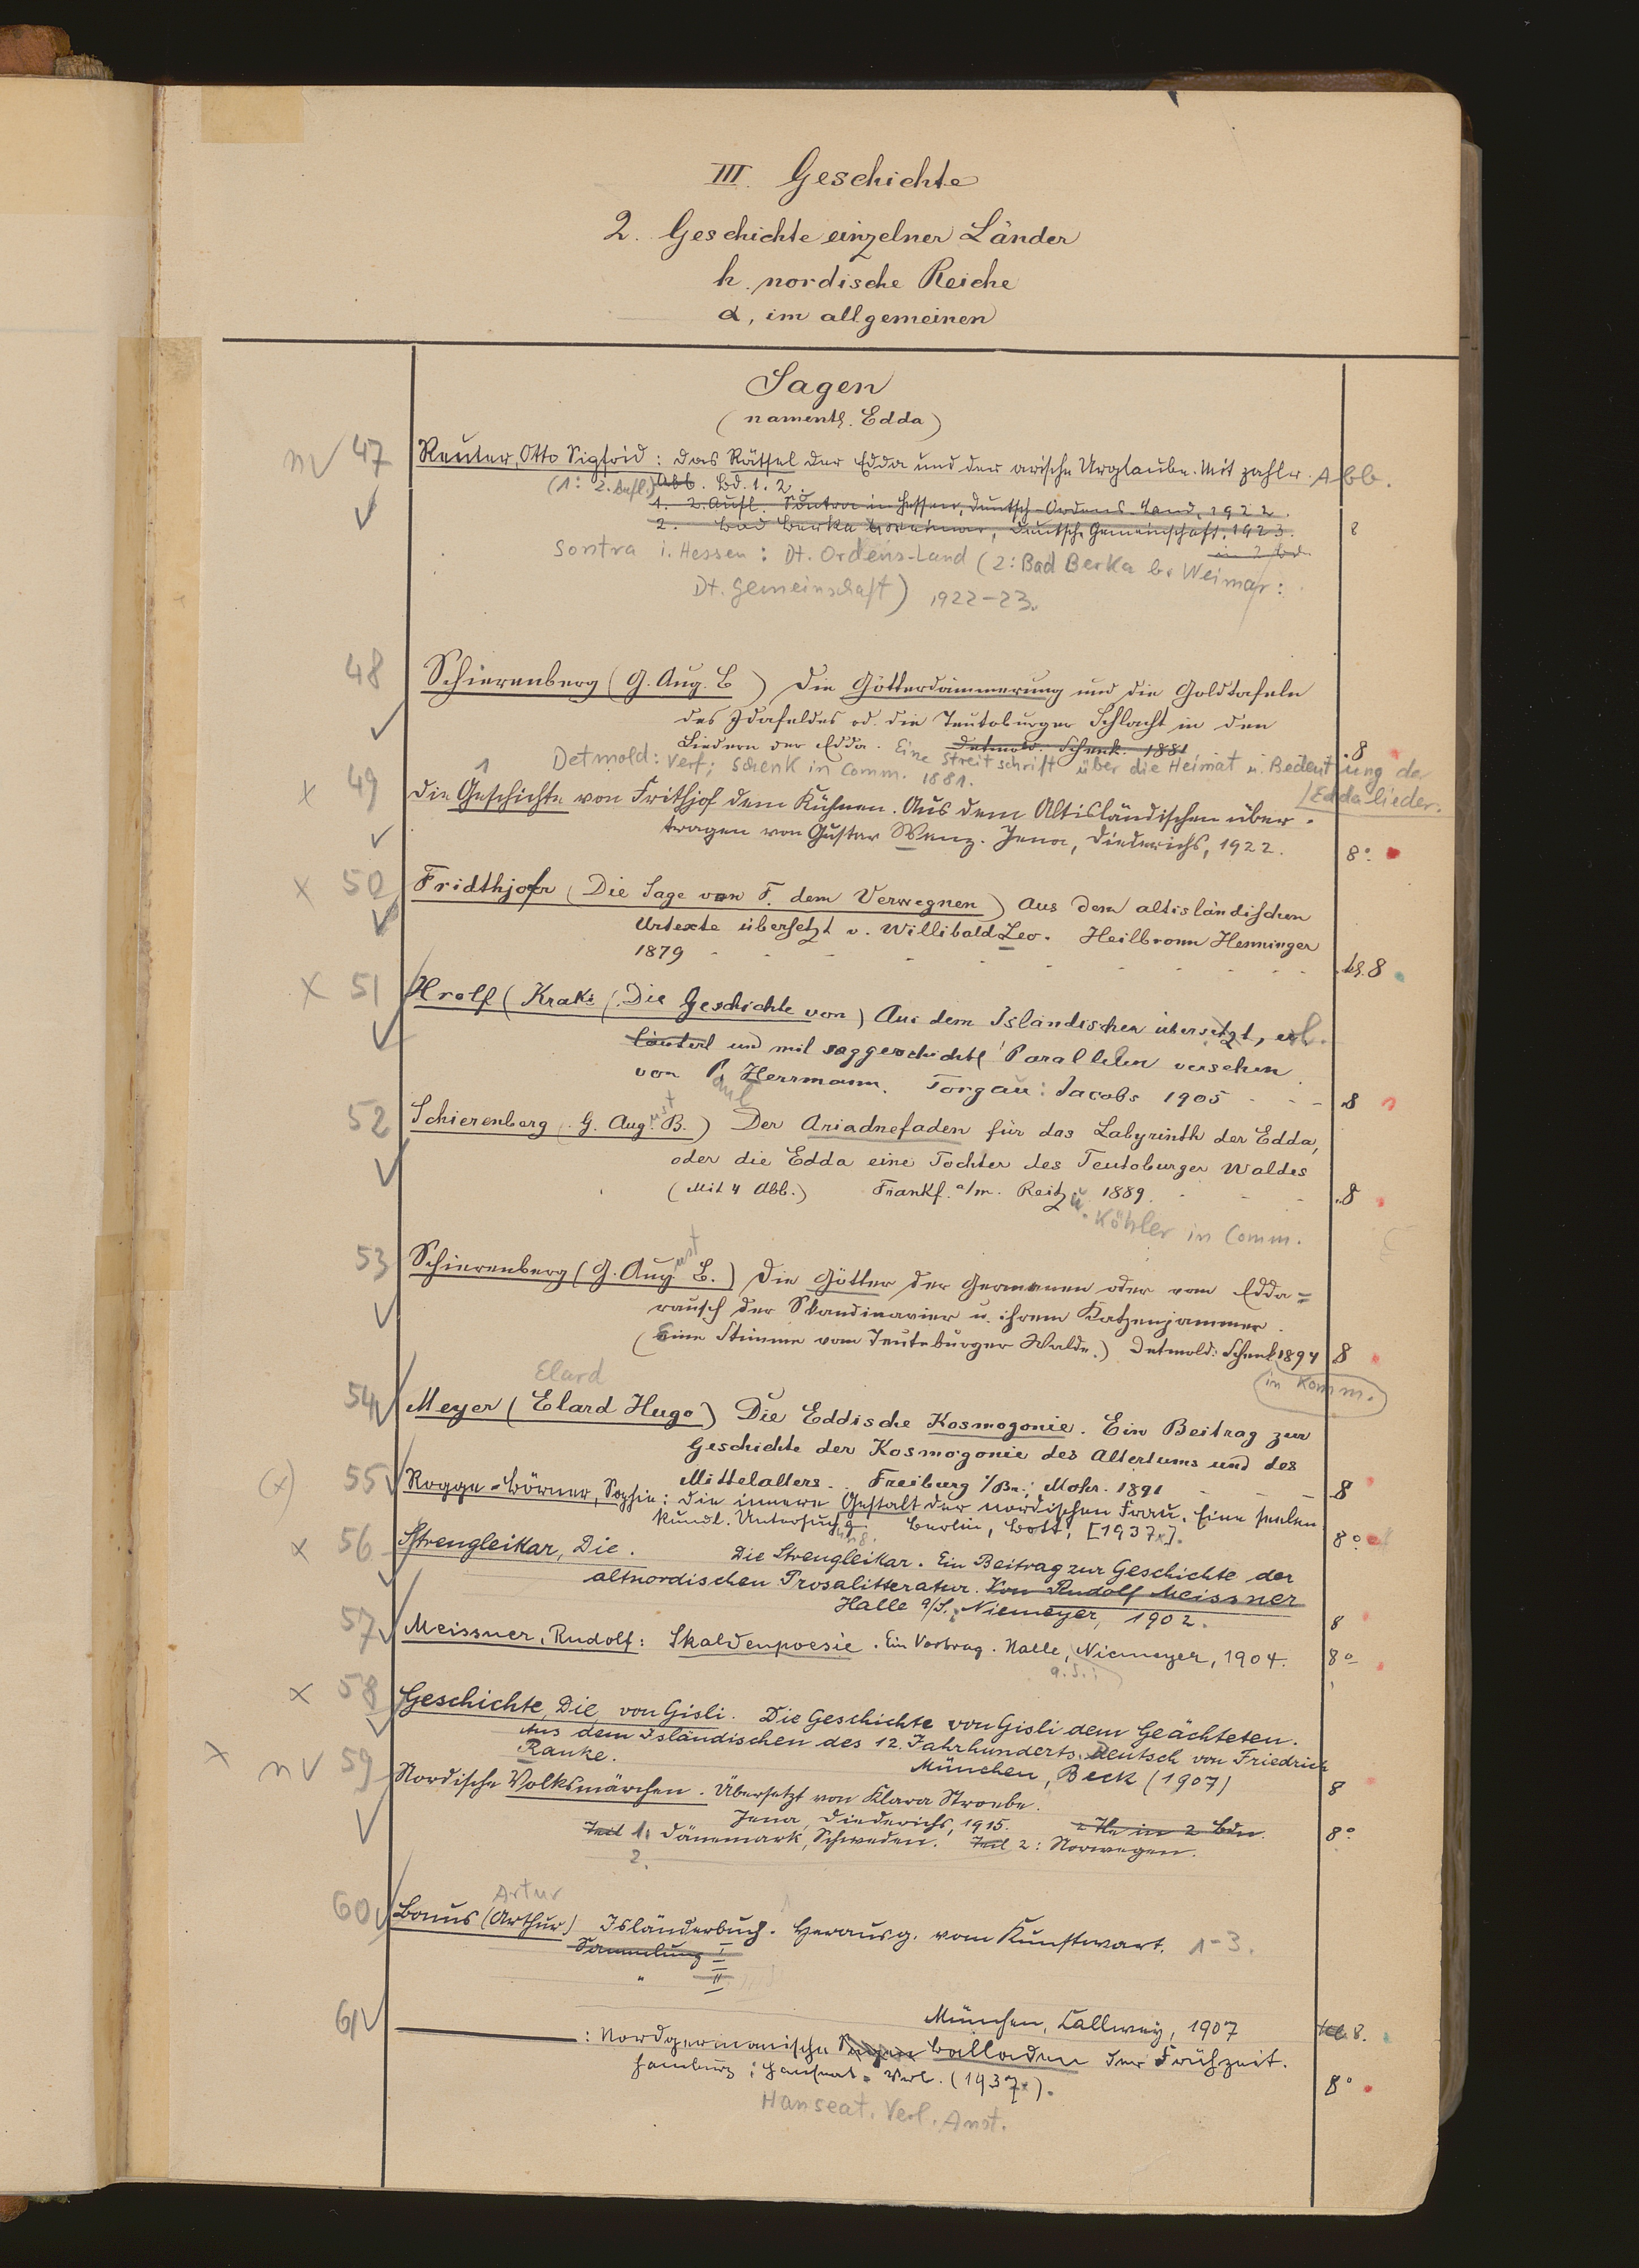 III. Geschichte
2. Geschichte einzelner Länder
h. nordische Reiche
α, im allgemeinen
Sagen
(namentl. Edda)
n √ 47 Reuter, Otto Sigfrid: Das Rätsel der Edda und der arische Urglaube. Mit zahlr. Abb.
(1: 2. Aufl.) Abb. Bd. 1. 2.
1. 2. Aufl. Sontra in Hessen, Deutsch-Ordens-Land, 1922.
2. Bad Berka b. Weimar, Deutsche Gemeinschaft, 1923. 8
in 2 Bd.
Sontra i. Hessen: Dt. Ordens-Land (2: Bad Berka b. Weimar:
Dt. Gemeinschaft) 1922-23.
48 Schierenberg (G. Aug. B) Die Götterdämmerung und die Goldtafeln
des Idafeldes od. die Teutoburger Schlacht in den
Liedern der Edda. Detmold: Schenk. 1881 8
Eine Streitschrift über die Heimat u. Bedeutung der
/Eddalieder.
Detmold: Verf; Schenk in Comm. 1881.
x 49 Die Geschichte von Frithjof dem Kühnen. Aus dem Altisländischen über-
tragen von Gustav Wenz. Jena, Diederichs, 1922. 8°
x 50 Fridthjofr (Die Sage von F. dem Verwegnen) Aus dem altisländischen
Urtexte übersetzt v. Willibald Leo. Heilbronn Henninger
1879 kl. 8
x 51 Hrolf (Kraki (Die Geschichte von) Aus dem Isländischen übersetzt, erl.
läutert und mit saggeschichtl Parallelen versehen
von P. Herrmann. Torgau: Jacobs 1905 8
aul
52 Schierenberg (G. Aug. B.) Der Ariadnefaden für das Labyrinth der Edda,
ust
oder die Edda eine Tochter des Teutoburger Waldes
(Mit 4 Abb.) Frankf. a/m. Reitz 1889 8
u. Köhler in Comm.
53 Schierenberg (G. Aug. B.) Die Götter der Germanen oder vom Edda=
ust
rausch der Skandinavier u. ihrem Katzenjammer.
(Eine Stimme vom Teutoburger Walde.) Detmold: Schenk 1894 8
in Komm.
Elard
54 Meyer (Elard Hugo) Die Eddische Kosmogonie. Ein Beitrag zur
Geschichte der Kosmogonie des Altertums und des
Mittelalters. Freiburg i/Br.; Mohr. 1891 8
(x) 55 Rogge-Börner, Sophie: Die innere Gestalt der nordischen Frau. Eine seelen
kundl. Untersuchg. Berlin, Bott, [1937]. 8°
x 56 Strengleikar, Die. Die Strengleikar. Ein Beitrag zur Geschichte der
altnordischen Prosalitteratur. Von Rudolf Meissner
Halle a/S. Niemeyer, 1902. 8
57 Meissner, Rudolf: Skaldenpoesie. Ein Vortrag. Halle, Niemeyer, 1904. 8°
a. S.:
x 58 Geschichte, Die, von Gisli. Die Geschichte von Gisli dem Geächteten.
Aus dem Isländischen des 12. Jahrhunderts. Deutsch von Friedrich
Ranke. München, Beck (1907) 8
x n √ 59 Nordische Volksmärchen. Übersetzt von Klara Stroebe.
Jena, Diederichs, 1915. 2 Tle in 2 Bdn. 8°
Teil 1: Dänemark, Schweden. Teil 2: Norwegen.
2.
Artur
60 Bonus (Arthur) Isländerbuch. Herausg. vom Kunstwart. 1-3.
Sammlung I
" II
München, Callwey, 1907 8.
61 ———: Nordgermanische Sagen Balladen der Frühzeit.
Hamburg: Hanseat. Verl. (1937). 8°
Hanseat. Verl. Anst.